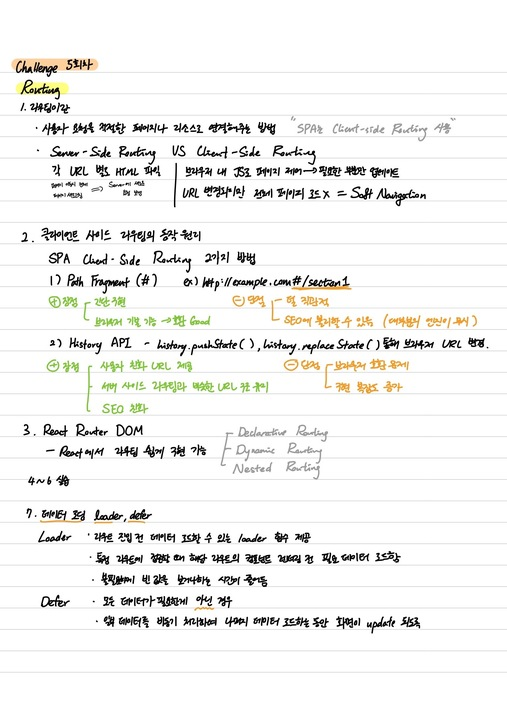 Challenge 5회차
Routing
1. 라우팅이란
· 사용자 요청을 적절한 페이지나 리소스로 연결해주는 방법 "SPA는 Client-side Routing 사용"
· Server-Side Routing VS Client-Side Routing
각 URL 별로 HTML 파일 브라우저 내 JS로 페이지 제어 → 필요한 부분만 업데이트
⇒ Server에 URL 변경되지만 전체 페이지 로드 X = Soft Navigation
2. 클라이언트 사이드 라우팅의 동작 원리
SPA Client-Side Routing 2가지 방법
1) Path Fragment (#) ex) http://example.com#/section1
⊕ 장점 - 간단 구현 ⊖ 단점 - 덜 직관적
- 브라우저 기본 기능 → 호환 Good - SEO에 불리할 수 있음 (대부분의 엔진이 무시)
2) History API - history.pushState(), history.replaceState() 통해 브라우저 URL 변경.
⊕ 장점 - 사용자 친화 URL 제공 ⊖ 단점 - 브라우저 호환 문제
- 서버 사이드 라우팅과 비슷한 URL 구조 유지 - 구현 복잡도 증가
- SEO 친화
3. React Router DOM - Declarative Routing
- React에서 라우팅 쉽게 구현 가능 - Dynamic Routing
- Nested Routing
4~6 실습
7. 데이터 로딩 loader, defer
Loader · 라우트 진입 전 데이터 로드할 수 있는 loader 함수 제공
· 특정 라우트에 접근할 때 해당 라우트의 컴포넌트 렌더링 전 필요 데이터 로드함
· 불필요하게 빈 값을 보여줘야하는 시간이 줄어듦
Defer · 모든 데이터가 필요한게 아닌 경우
· 일부 데이터를 비동기 처리하여 나머지 데이터 로드하는 동안 화면이 update 되도록